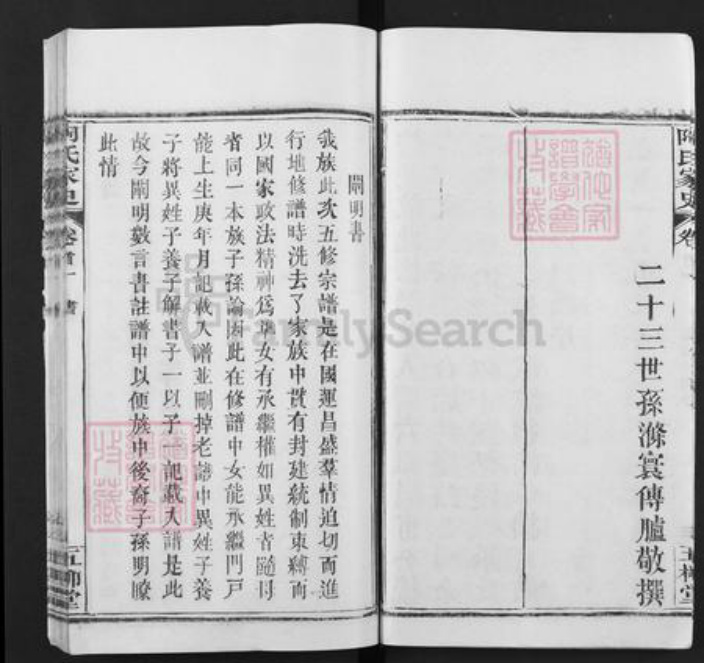 陶氏家史 卷
五柳堂
二十三世孫滌寰傳臚敬撰
闡明書
我族此次五修宗譜是在國運昌盛羣情迫切而進
行地修譜時洗去了家族中舊有封建統制束縛而
以國家政法精神爲準女有承繼權如異姓者隨母
者同一本族子孫論因此在修譜中女能承繼門戸
能上生庚年月記載入譜並刪掉老譜中異姓子養
子將異姓子養子解書子一以子一記載入譜是此
故今闡明數言書註譜中以便族中後裔子孫明瞭
此情
陶氏家史 卷首一 書
五柳堂
FamilySearch